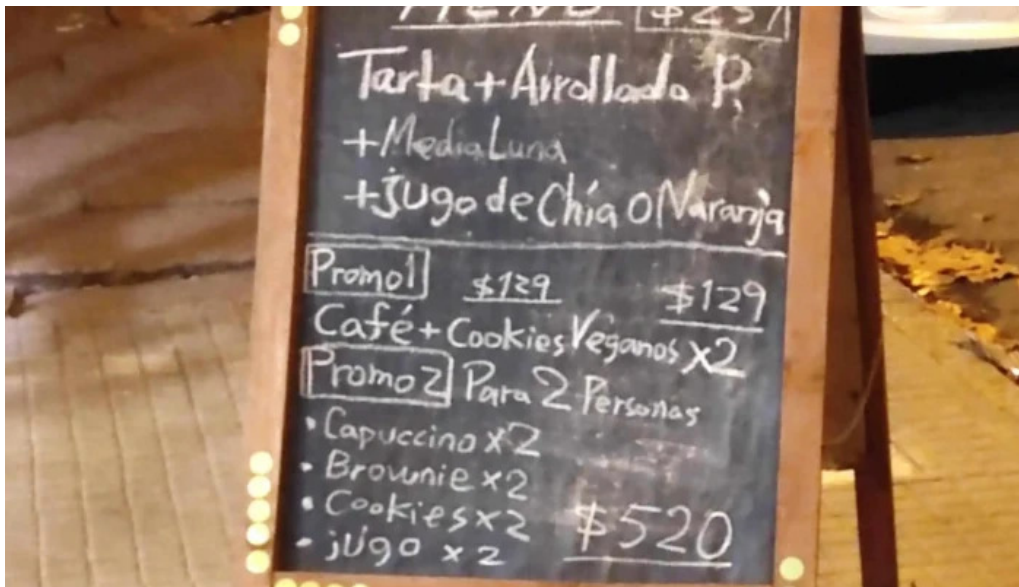 MENÚ $257
Tarta + Arrollado P.
+ Media Luna
+ jugo de Chía O Naranja
Promo 1 $129 $129
Café + Cookies Veganos x2
Promo 2 Para 2 Personas
• Capuccino x 2
• Brownie x 2
• Cookies x 2
• jugo x 2 $520